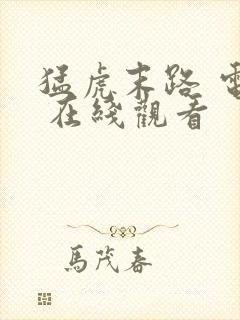 猛虎末路 電
在綫觀看
馬茂春